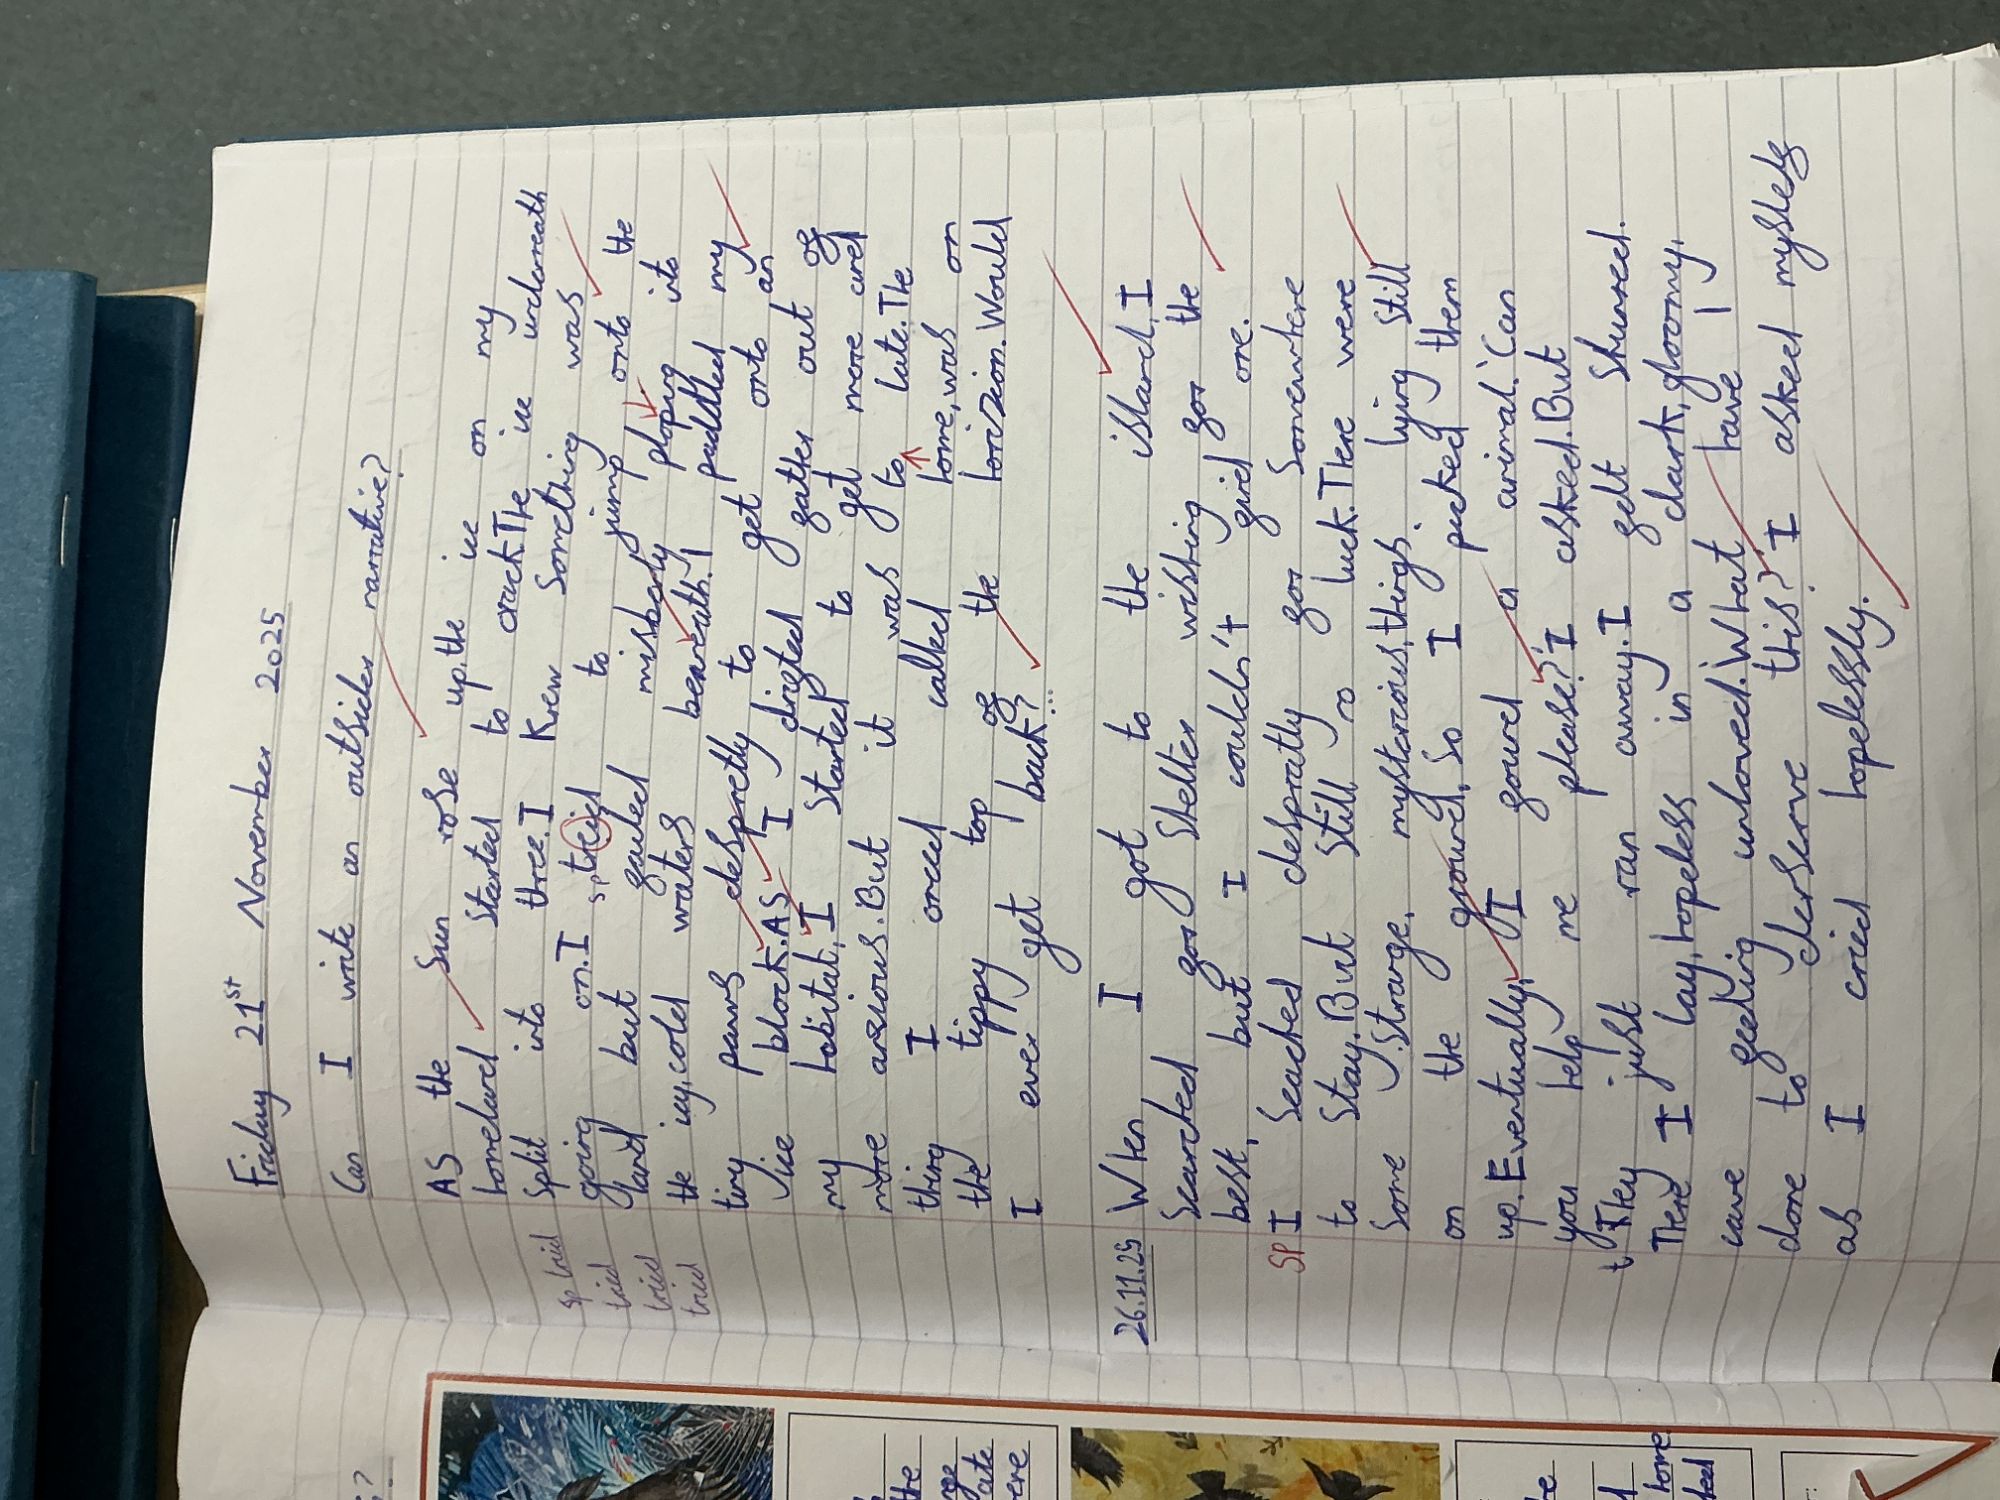 Friday 21st November 2025
Can I write an outsider narrative?
AS the Sun rose up, the ice on my
homeland started to crack. The ice underneath
Split into three. I Knew Something was
going on. I tried to jump onto the
sp
land but failed misberly ploping into
the icy, cold waters beneath. I paddled my
tiny paws despretly to get onto an
ice block. AS I drifted father out of
my habitat, I Started to get more and
more anxious. But it was to late. The
thing I onced called home, was on
the tippy top of the horizion. Would
I ever get back?...
sp tried
tried
tried
tried
26.11.25
When I got to the island, I
Searched for Shelter wishing for the
best, but I couldn't find one.
SP
I Seached despratly for Somewhere
to Stay. But Still no luck. There were
Some Strange, mysterious, things lying Still
on the ground, So I picked them
up. Eventually, I found a animal. 'Can
you help me please?' I asked. But
They just ran away. I felt Shunned.
t
There I lay, hopeless in a dark, gloomy,
cave feeling unloved. 'What have I
done to derserve this?' I asked myslelf
as I cried hopelessly.
?
the
ate
ere
home